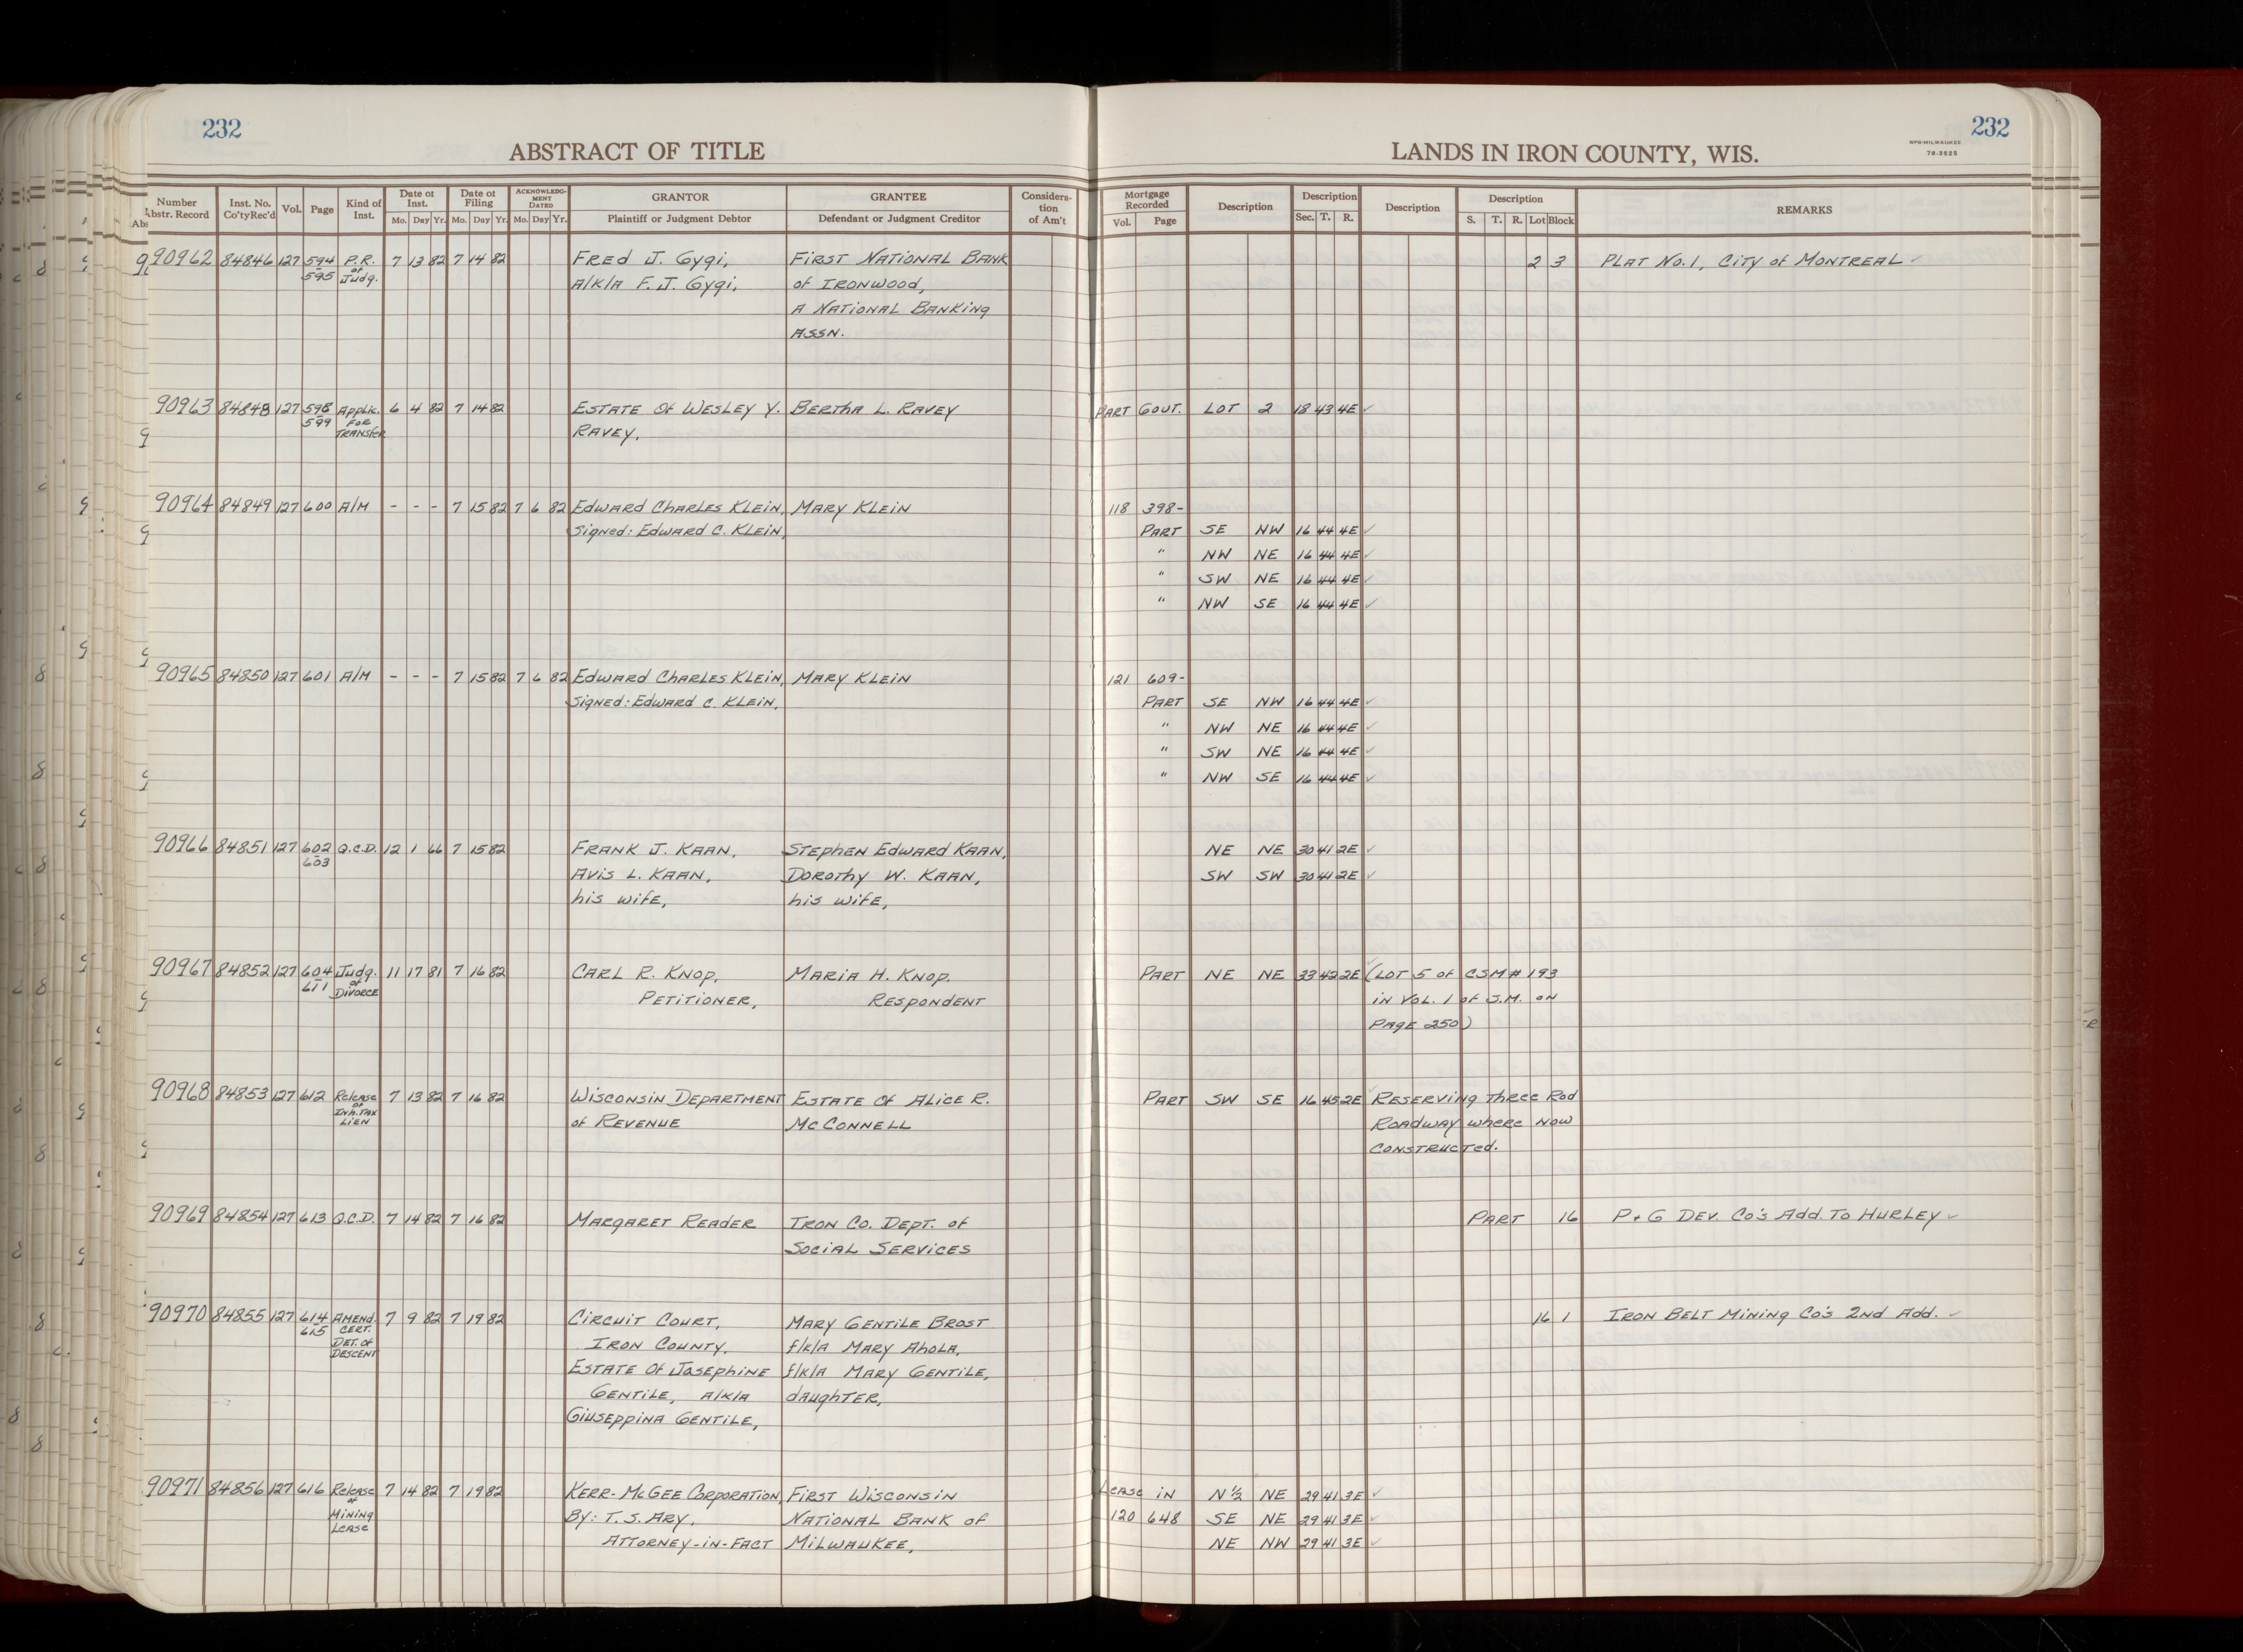 232
ABSTRACT OF TITLE
Number Abstr. Record Inst. No. Co'ty Rec'd Vol. Page Kind of Inst. Date of Inst. Mo. Day Yr. Date of Filing Mo. Day Yr. ACKNOWLEDGMENT DATED Mo. Day Yr. GRANTOR Plaintiff or Judgment Debtor GRANTEE Defendant or Judgment Creditor Consideration of Am't
232
LANDS IN IRON COUNTY, WIS.
WPB-MILWAUKEE
78-3525
Mortgage Recorded Vol. Page Description Description Sec. T. R. Description Description S. T. R. Lot Block REMARKS
90962 84846 127 594 P.R. 7 13 82 7 14 82 FRED J. Gygi, FIRST NATIONAL BANK 2 3 PLAT No. 1, City of MONTREAL ✓
595 of Judg. A/K/A F. J. Gygi, of IRONWOOD,
A NATIONAL BANKING
ASSN.
90963 84848 127 598 Applic. 6 4 82 7 14 82 ESTATE Of WESLEY Y. BERTHA L. RAVEY PART GOVT. LOT 2 18 43 4E ✓
599 FOR RAVEY.
TRANSfER
90964 84849 127 600 A/M - - - 7 15 82 7 6 82 EDWARD CHARLES KLEIN, MARY KLEIN 118 398-
Signed: EDWARD C. KLEIN, PART SE NW 16 44 4E ✓
" NW NE 16 44 4E ✓
" SW NE 16 44 4E ✓
" NW SE 16 44 4E ✓
90965 84850 127 601 A/M - - - 7 15 82 7 6 82 EDWARD CHARLES KLEIN, MARY KLEIN 121 609-
Signed: EDWARD C. KLEIN, PART SE NW 16 44 4E ✓
" NW NE 16 44 4E ✓
" SW NE 16 44 4E ✓
" NW SE 16 44 4E ✓
90966 84851 127 602 Q.C.D. 12 1 66 7 15 82 FRANK J. KAAN, STEPHEN EDWARD KAAN, NE NE 30 41 2E ✓
603 AVIS L. KAAN, DOROTHY W. KAAN, SW SW 30 41 2E ✓
his wife, his wife,
90967 84852 127 604 Judg. 11 17 81 7 16 82 CARL R. KNOP, MARIA H. KNOP. PART NE NE 33 42 2E (LOT 5 of CSM # 193
611 of PETITIONER, RESPONDENT in VOL. 1 of S.M. ON
DIVORCE PAGE 250)
90968 84853 127 612 Release 7 13 82 7 16 82 WISCONSIN DEPARTMENT ESTATE Of ALICE R. PART SW SE 16 45 2E RESERVING THREE ROD
of INh. TAX of REVENUE McCONNELL ROADWAY WHERE NOW
LIEN CONSTRUCTED.
90969 84854 127 613 Q.C.D. 7 14 82 7 16 82 MARGARET READER IRON CO. DEPT. of PART 16 P+G DEV. Co's Add. To HURLEY ✓
SOCIAL SERVICES
90970 84855 127 614 AMEND. 7 9 82 7 19 82 CIRCUIT COURT, MARY GENTILE BROST 16 1 IRON BELT MINING Co's 2nd Add. ✓
615 CERT. IRON COUNTY. f/k/A MARY AHOLA,
DET. Of ESTATE Of JOSEPHINE f/k/A MARY GENTILE,
DESCENT GENTILE, A/K/A daughter,
GIUSEPPINA GENTILE,
90971 84856 127 616 Release 7 14 82 7 19 82 KERR-McGEE CORPORATION, FIRST WISCONSIN LEASE IN N 1/2 NE 29 41 3E ✓
of MINING By: T. S. ARY, NATIONAL BANK Of 120 648 SE NE 29 41 3E ✓
Lease ATTORNEY-IN-FACT MILWAUKEE, NE NW 29 41 3E ✓